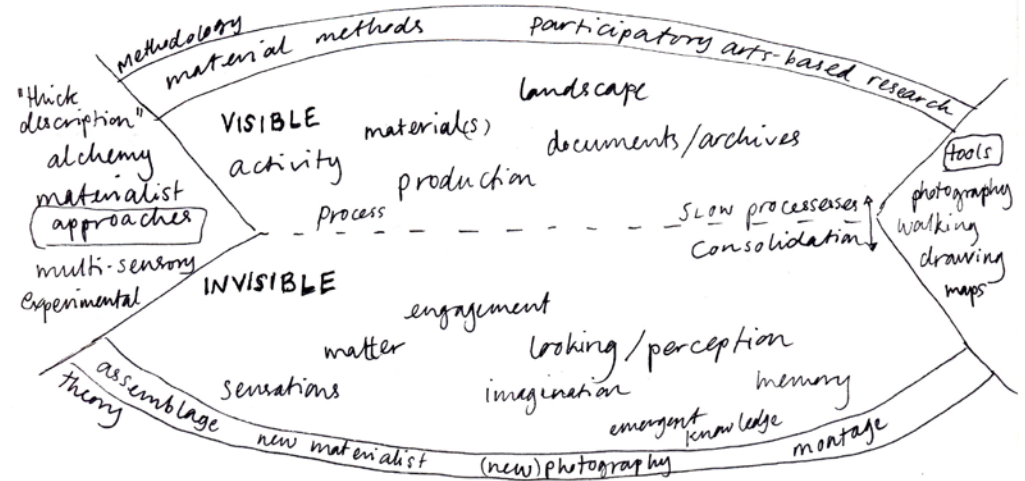 methodology
material methods
participatory arts-based research
"thick
description"
alchemy
materialist
approaches
multi-sensory
experimental
VISIBLE
landscape
material(s)
activity
documents/archives
production
Process
Slow processeses
Consolidation
tools
photography
walking
drawing
maps
INVISIBLE
engagement
matter
looking/perception
sensations
imagination
memory
emergent
knowledge
theory
assemblage
new materialist
(new)photography
montage